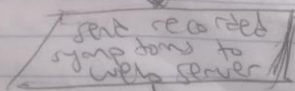 send recorded
symptoms to
web server